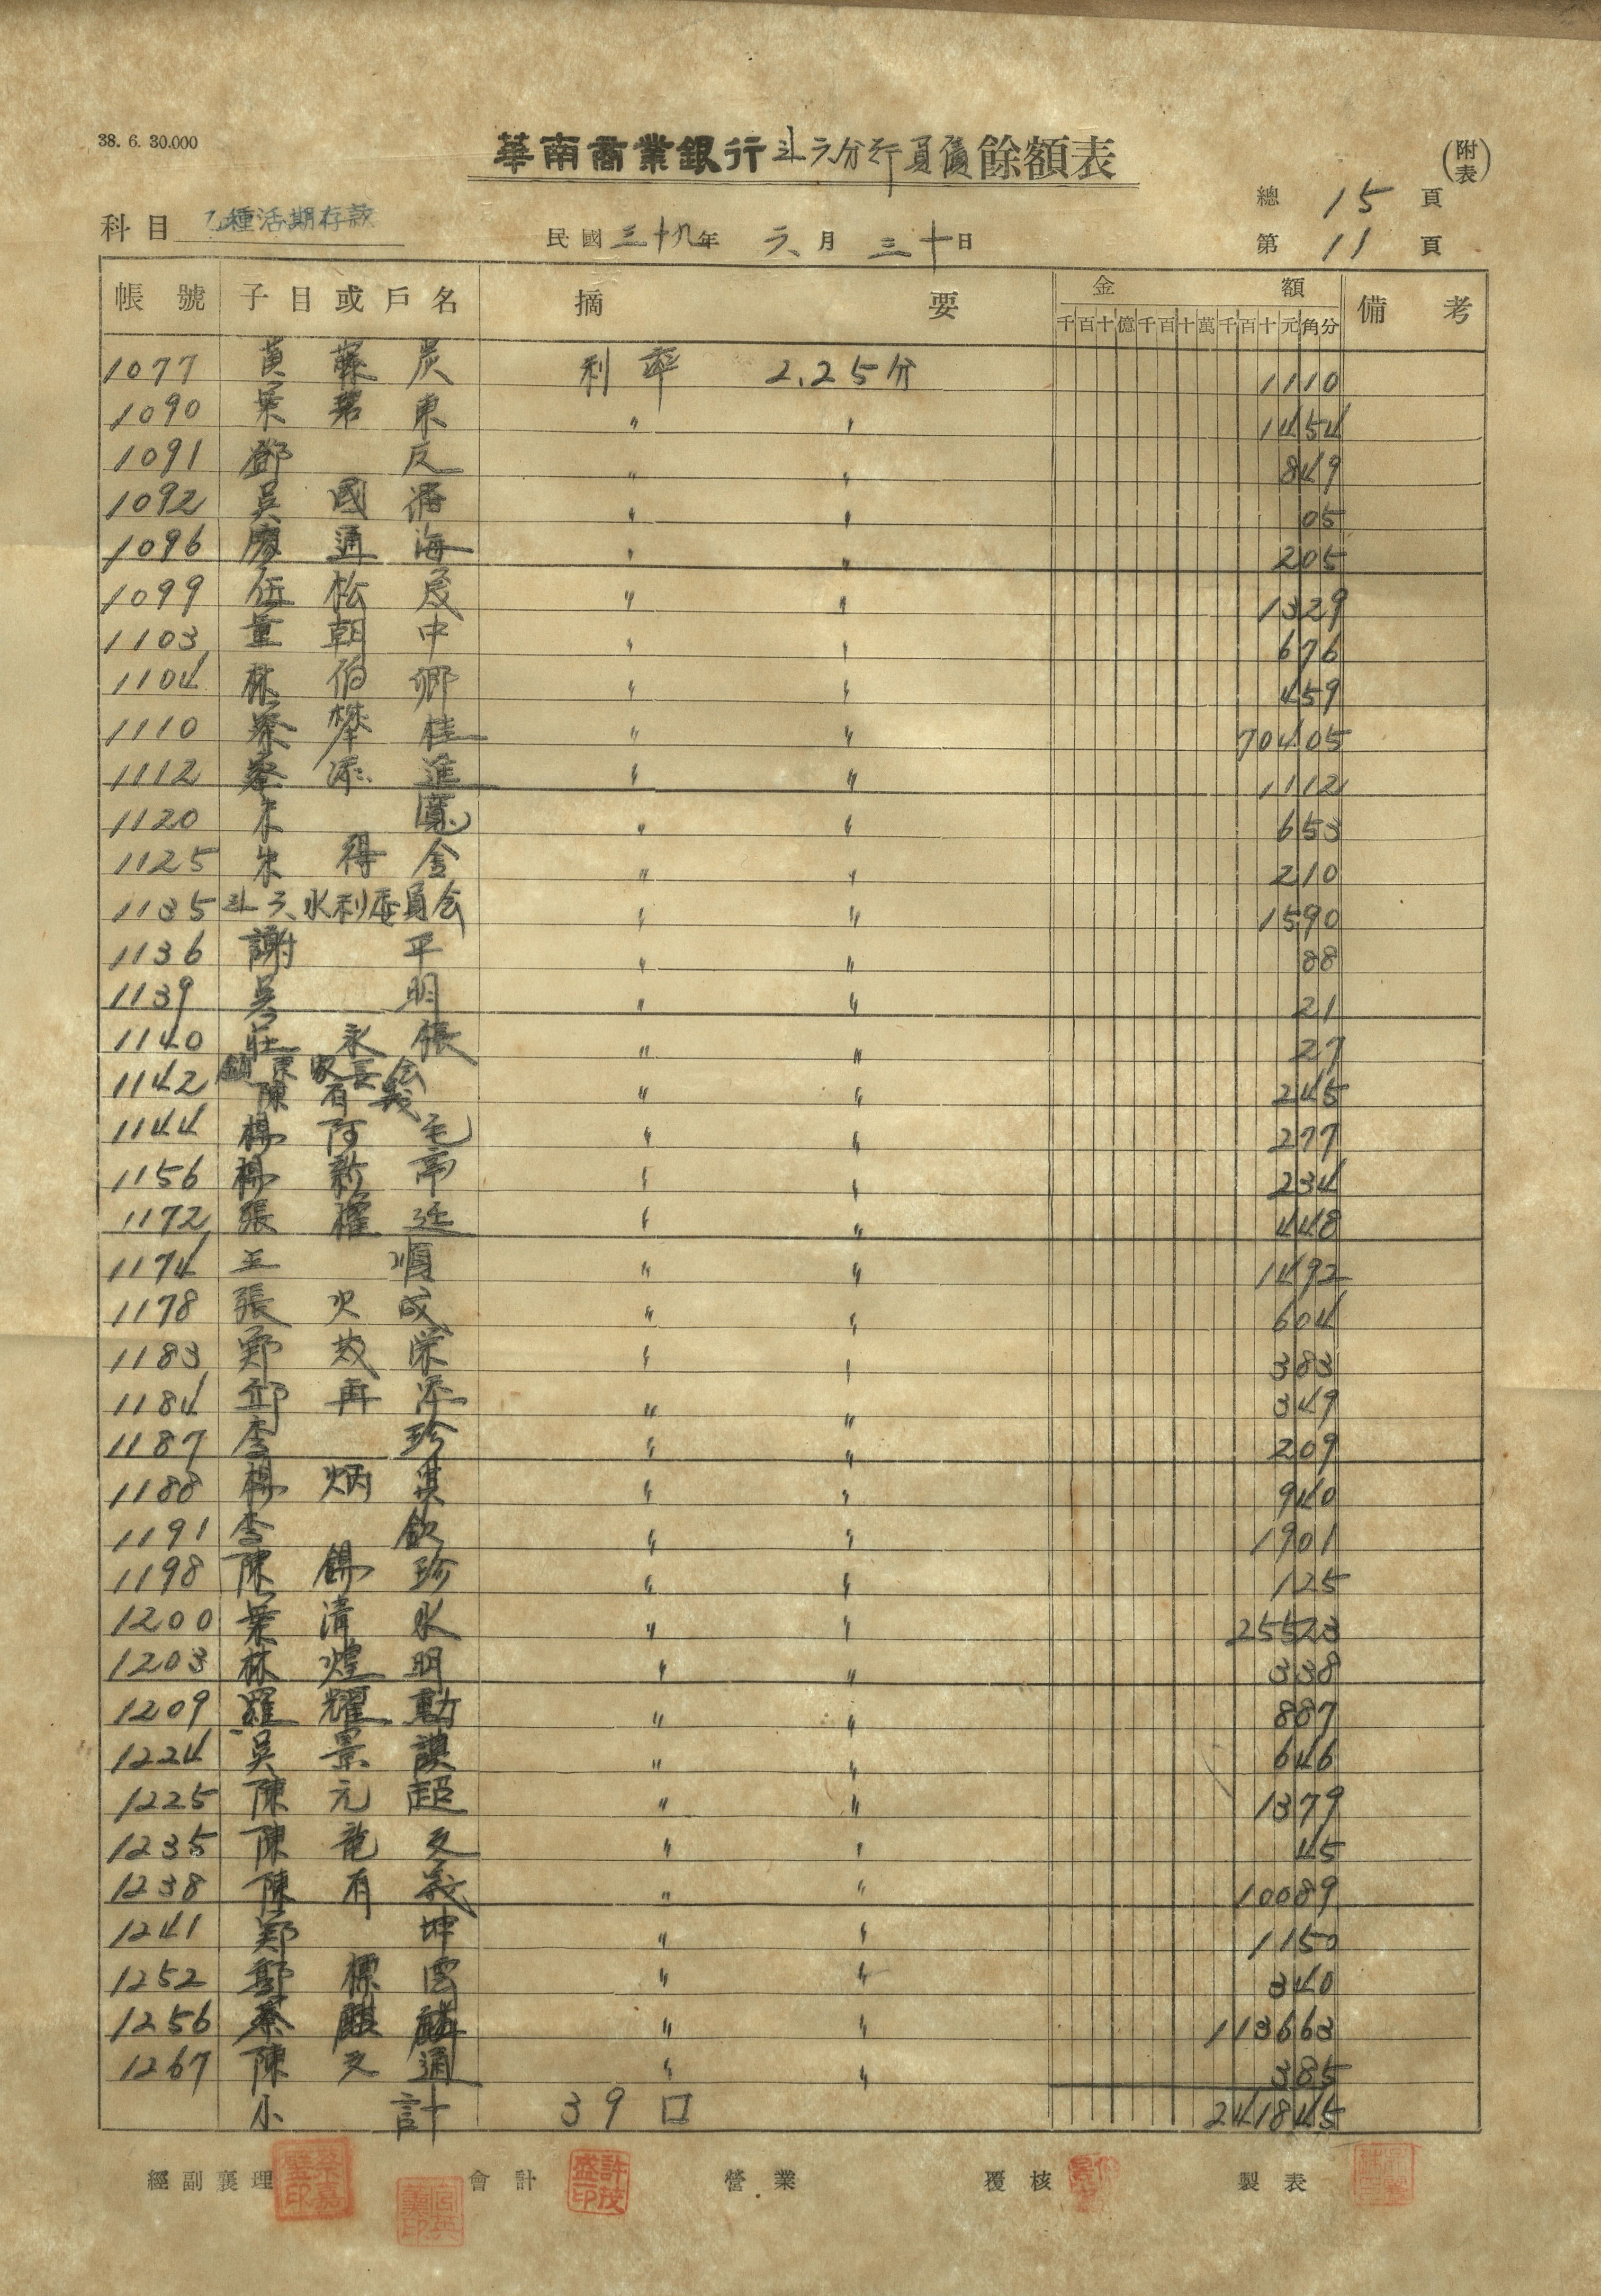 38. 6. 30.000
華南商業銀行斗六分行負債餘額表
(附表)
總 15 頁
科目 乙種活期存款
民國三十九年 六月 三十日
第 11 頁
帳號 子目或戶名 摘要 金額 備考
千百十億千百十萬千百十元角分
1077 黃 炭 利率 2.25分 1110
1090 葉 君 東 〃 〃 1454
1091 鄧 反 〃 〃 849
1092 吳 國 〃 〃 05
1096 廖 通 海 〃 〃 205
1099 伍 松 茂 〃 〃 1329
1103 董 朝 中 〃 〃 676
1104 林 伯 鄉 〃 〃 459
1110 蔡 攀 桂 〃 〃 70405
1112 蔡 添 進 〃 〃 1112
1120 朱 寬 〃 〃 653
1125 朱 得 金 〃 〃 210
1135 斗六水利委員会 〃 〃 1590
1136 謝 平 〃 〃 88
1139 吳 明 〃 〃 21
1140 莊 永 張 〃 〃 27
1142 鎮東家長会 陳有義 〃 〃 245
1144 楊 阿 毛 〃 〃 277
1156 楊 新 〃 〃 234
1172 張 權 廷 〃 〃 448
1174 王 順 〃 〃 1492
1178 張 火 成 〃 〃 604
1183 鄭 茂 榮 〃 〃 383
1184 邱 再 添 〃 〃 349
1187 李 珍 〃 〃 209
1188 楊 炳 其 〃 〃 940
1191 李 欽 〃 〃 1901
1198 陳 錫 珍 〃 〃 125
1200 葉 清 水 〃 〃 25523
1203 林 煌 明 〃 〃 338
1209 羅 耀 勳 〃 〃 887
1224 吳 景 謨 〃 〃 646
1225 陳 元 超 〃 〃 1379
1235 陳 龍 文 〃 〃 45
1238 陳 有 義 〃 〃 10089
1241 鄭 坤 〃 〃 1150
1252 鄭 標 雲 〃 〃 340
1256 蔡 麒 麟 〃 〃 113663
1267 陳 文 通 〃 〃 385
小計 39口 241845
經副襄理 會計 營業 覆核 製表
蔡嘉璧印
許茂盛印